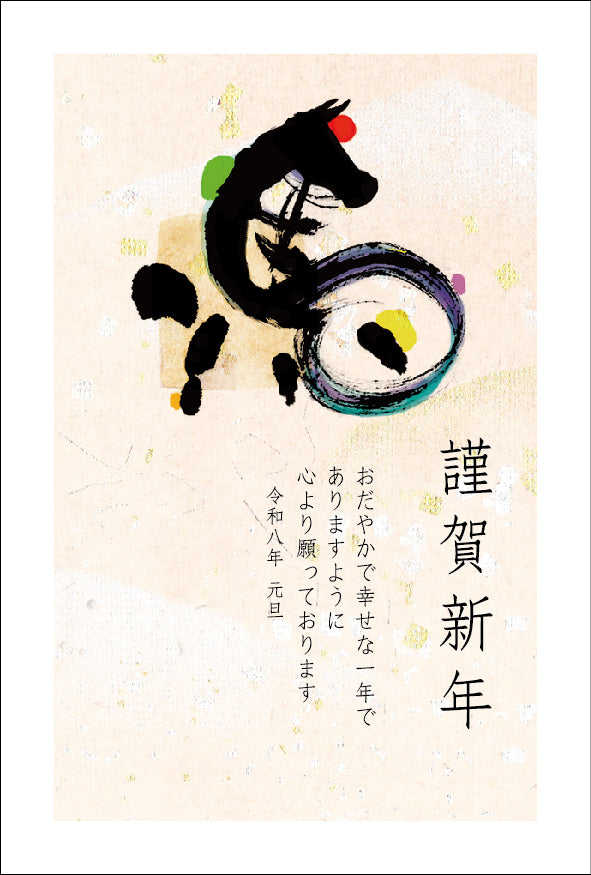 謹賀新年
おだやかで幸せな一年で
ありますように
心より願っております
令和八年 元旦